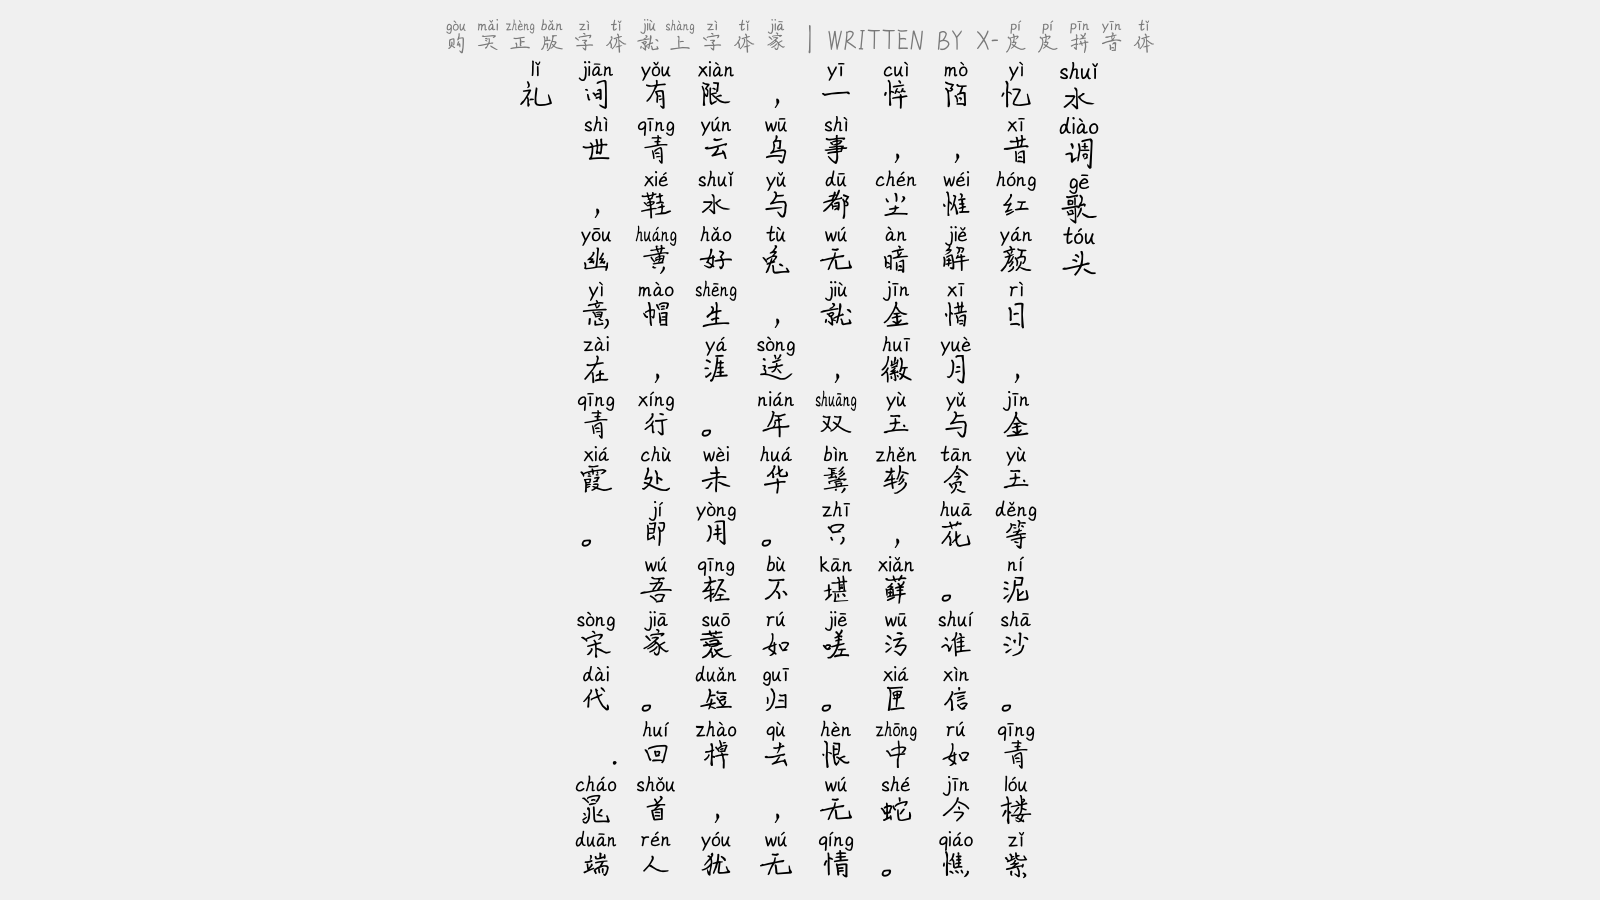 gòu mǎi zhèng bǎn zì tǐ jiù shàng zì tǐ jiā pí pí pīn yīn tǐ
购买正版字体就上字体家 | WRITTEN BY X-皮皮拼音体
shuǐ diào gē tóu
水调歌头
yì xī hóng yán rì jīn yù děng ní shā qīng lóu zǐ
忆昔红颜日，金玉等泥沙。青楼紫
mò wéi jiě xī yuè yǔ tān huā shuí xìn rú jīn qiáo
陌，惟解惜月与贪花。谁信如今憔
cuì chén àn jīn huī yù zhěn xiǎn wū xiá zhōng shé
悴，尘暗金徽玉轸，藓污匣中蛇。
yī shì dū wú jiù shuāng bìn zhī kān jiē hèn wú qíng
一事都无就，双鬓只堪嗟。恨无情
wū yǔ tù sòng nián huá bù rú guī qù wú
，乌与兔，送年华。不如归去，无
xiàn yún shuǐ hǎo shēng yá wèi yòng qīng suō duǎn zhào yóu
限云水好生涯。未用轻蓑短棹，犹
yǒu qīng xié huáng mào xíng chù jí wú jiā huí shǒu rén
有青鞋黄帽，行处即吾家。回首人
jiān shì yōu yì zài qīng xiá sòng dài cháo duān
间世，幽意在青霞。 宋代.晁端
lǐ
礼